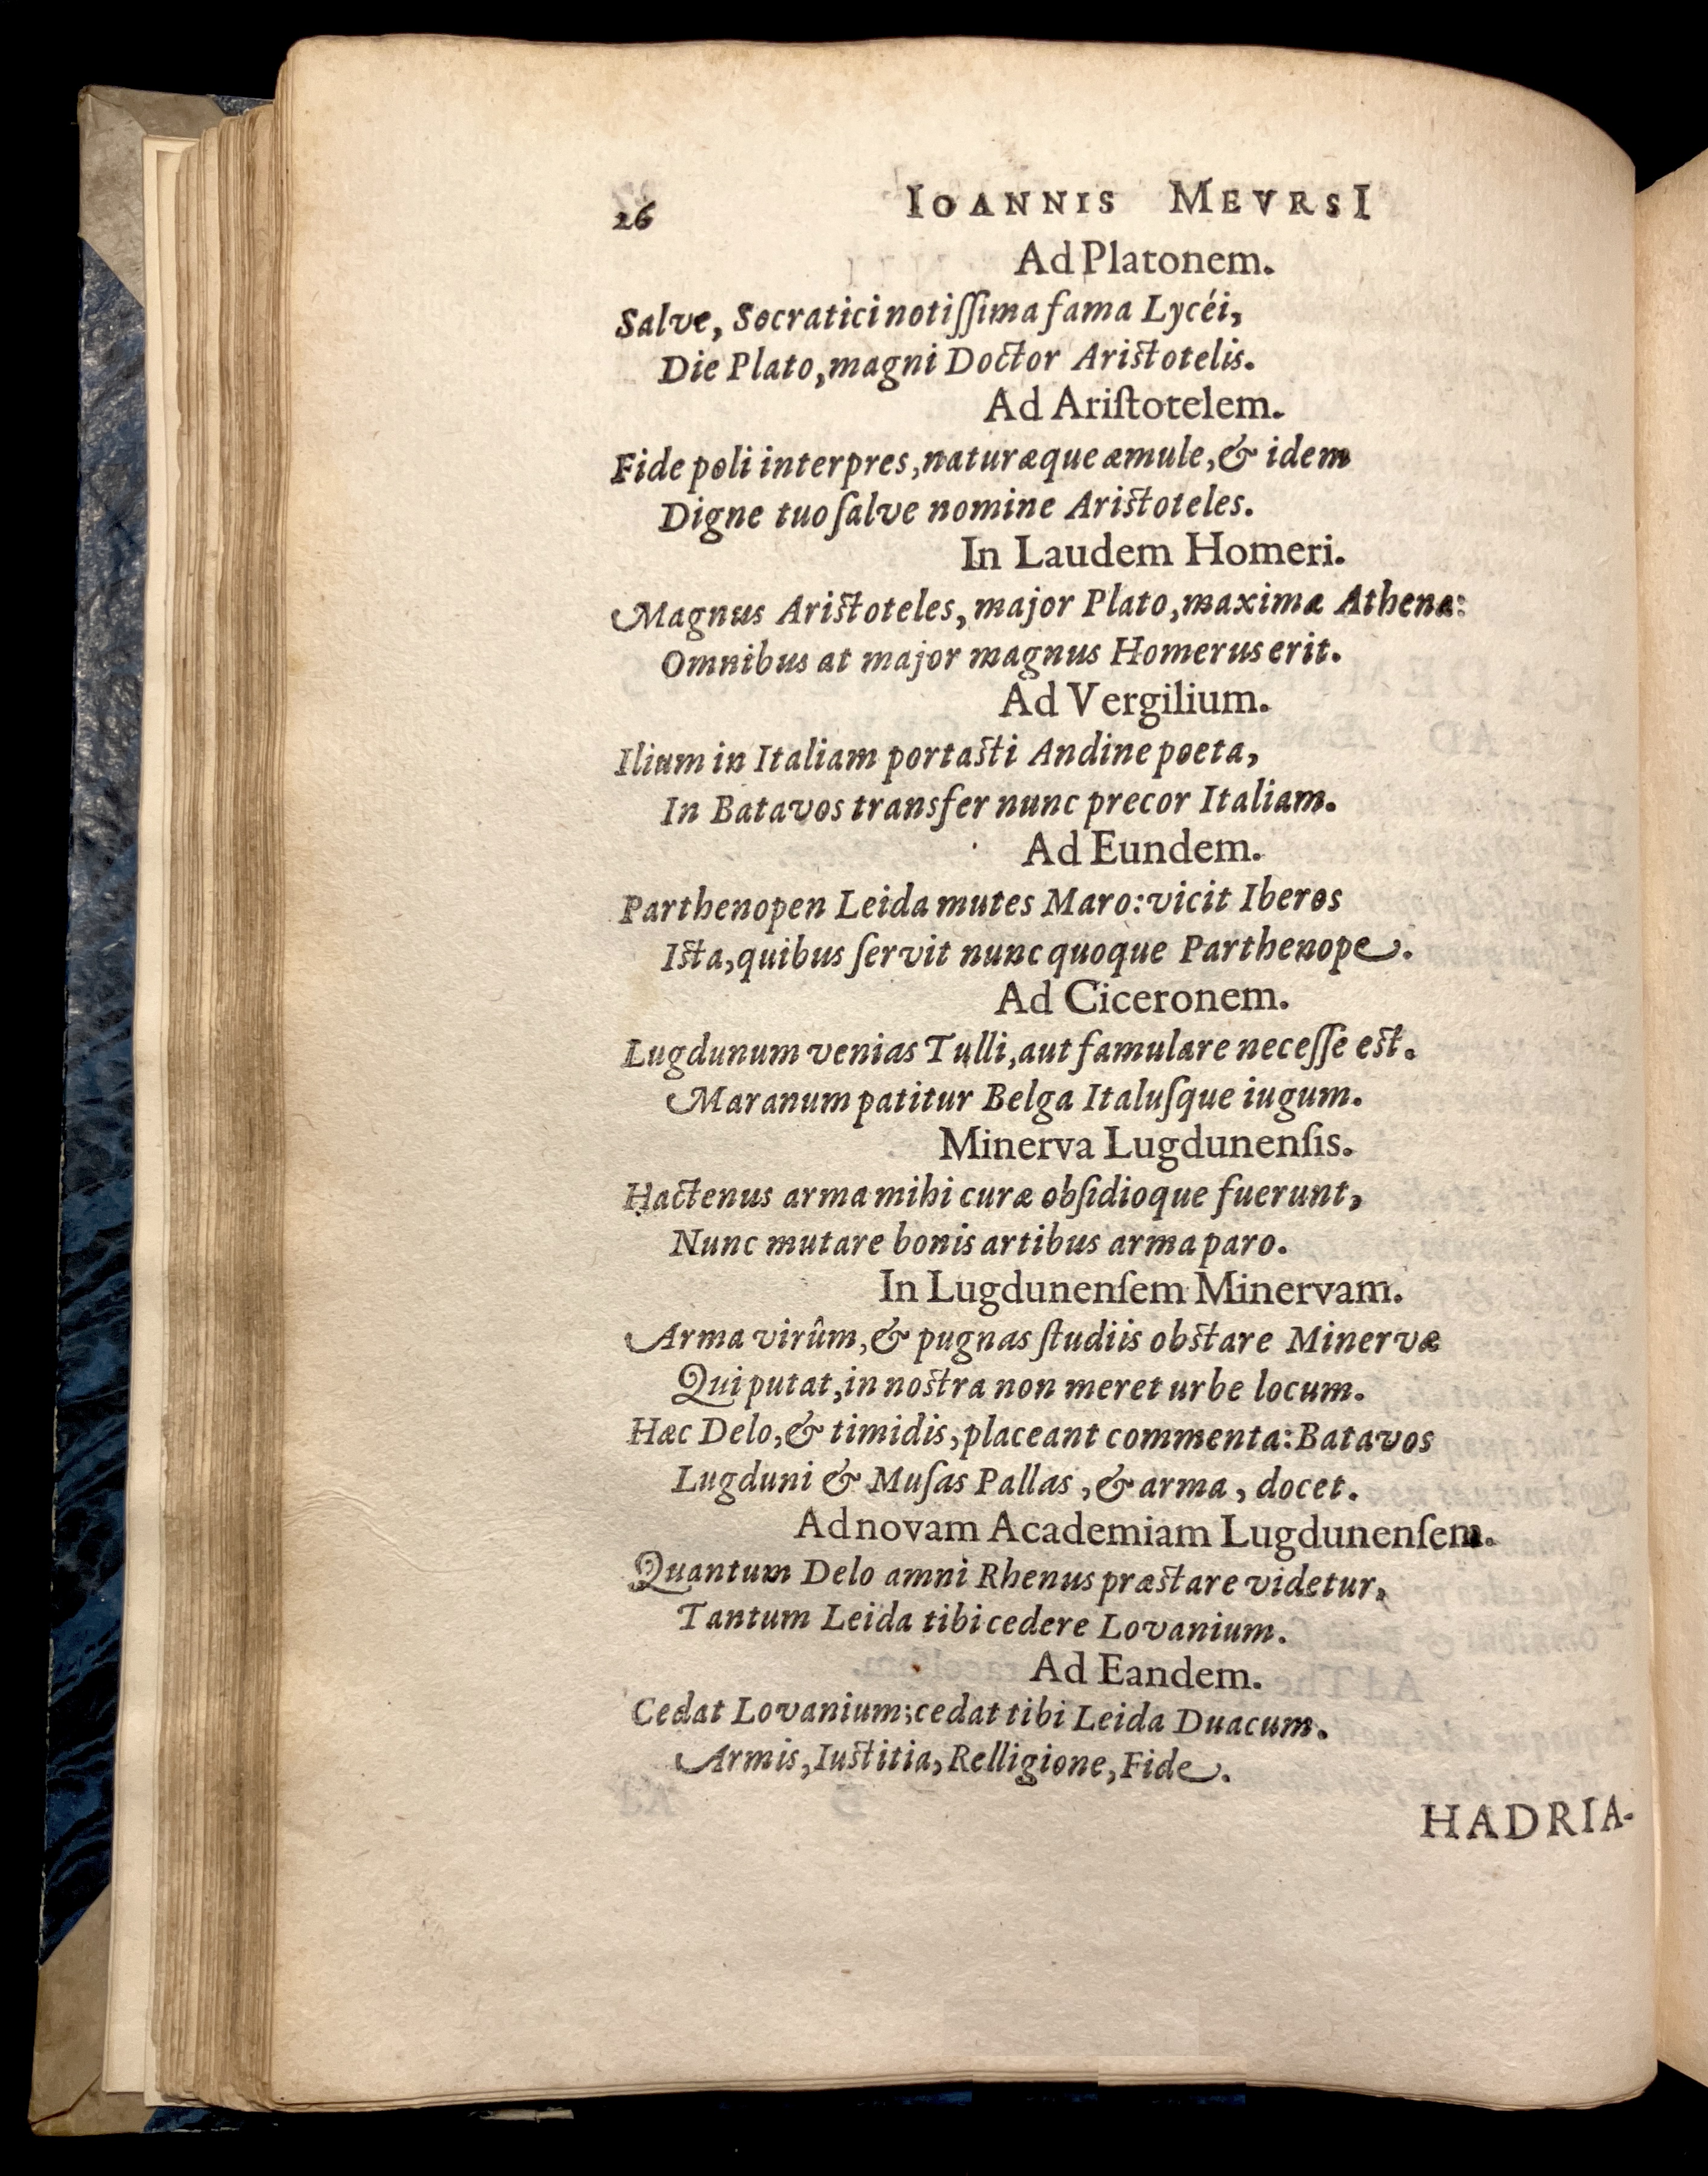 26 IOANNIS MEVRSI
Ad Platonem.
Salve, Socratici notiſſima fama Lycéi,
Die Plato, magni Doctor Aristotelis.
Ad Ariſtotelem.
Fide poli interpres, naturæque æmule, & idem
Digne tuo ſalve nomine Aristoteles.
In Laudem Homeri.
Magnus Aristoteles, major Plato, maximæ Athenæ:
Omnibus at major magnus Homerus erit.
Ad Vergilium.
Ilium in Italiam portasti Andine poeta,
In Batavos transfer nunc precor Italiam.
Ad Eundem.
Parthenopen Leida mutes Maro: vicit Iberos
Ista, quibus ſervit nunc quoque Parthenope.
Ad Ciceronem.
Lugdunum venias Tulli, aut famulare neceſſe est.
Maranum patitur Belga Italuſque iugum.
Minerva Lugdunenſis.
Hactenus arma mihi curæ obſidioque fuerunt,
Nunc mutare bonis artibus arma paro.
In Lugdunenſem Minervam.
Arma virûm, & pugnas ſtudiis obstare Minervæ
Qui putat, in nostra non meret urbe locum.
Hæc Delo, & timidis, placeant commenta: Batavos
Lugduni & Muſas Pallas, & arma, docet.
Ad novam Academiam Lugdunenſem.
Quantum Delo amni Rhenus præstare videtur,
Tantum Leida tibi cedere Lovanium.
Ad Eandem.
Cedat Lovanium; cedat tibi Leida Duacum.
Armis, Iustitia, Relligione, Fide.
HADRIA-